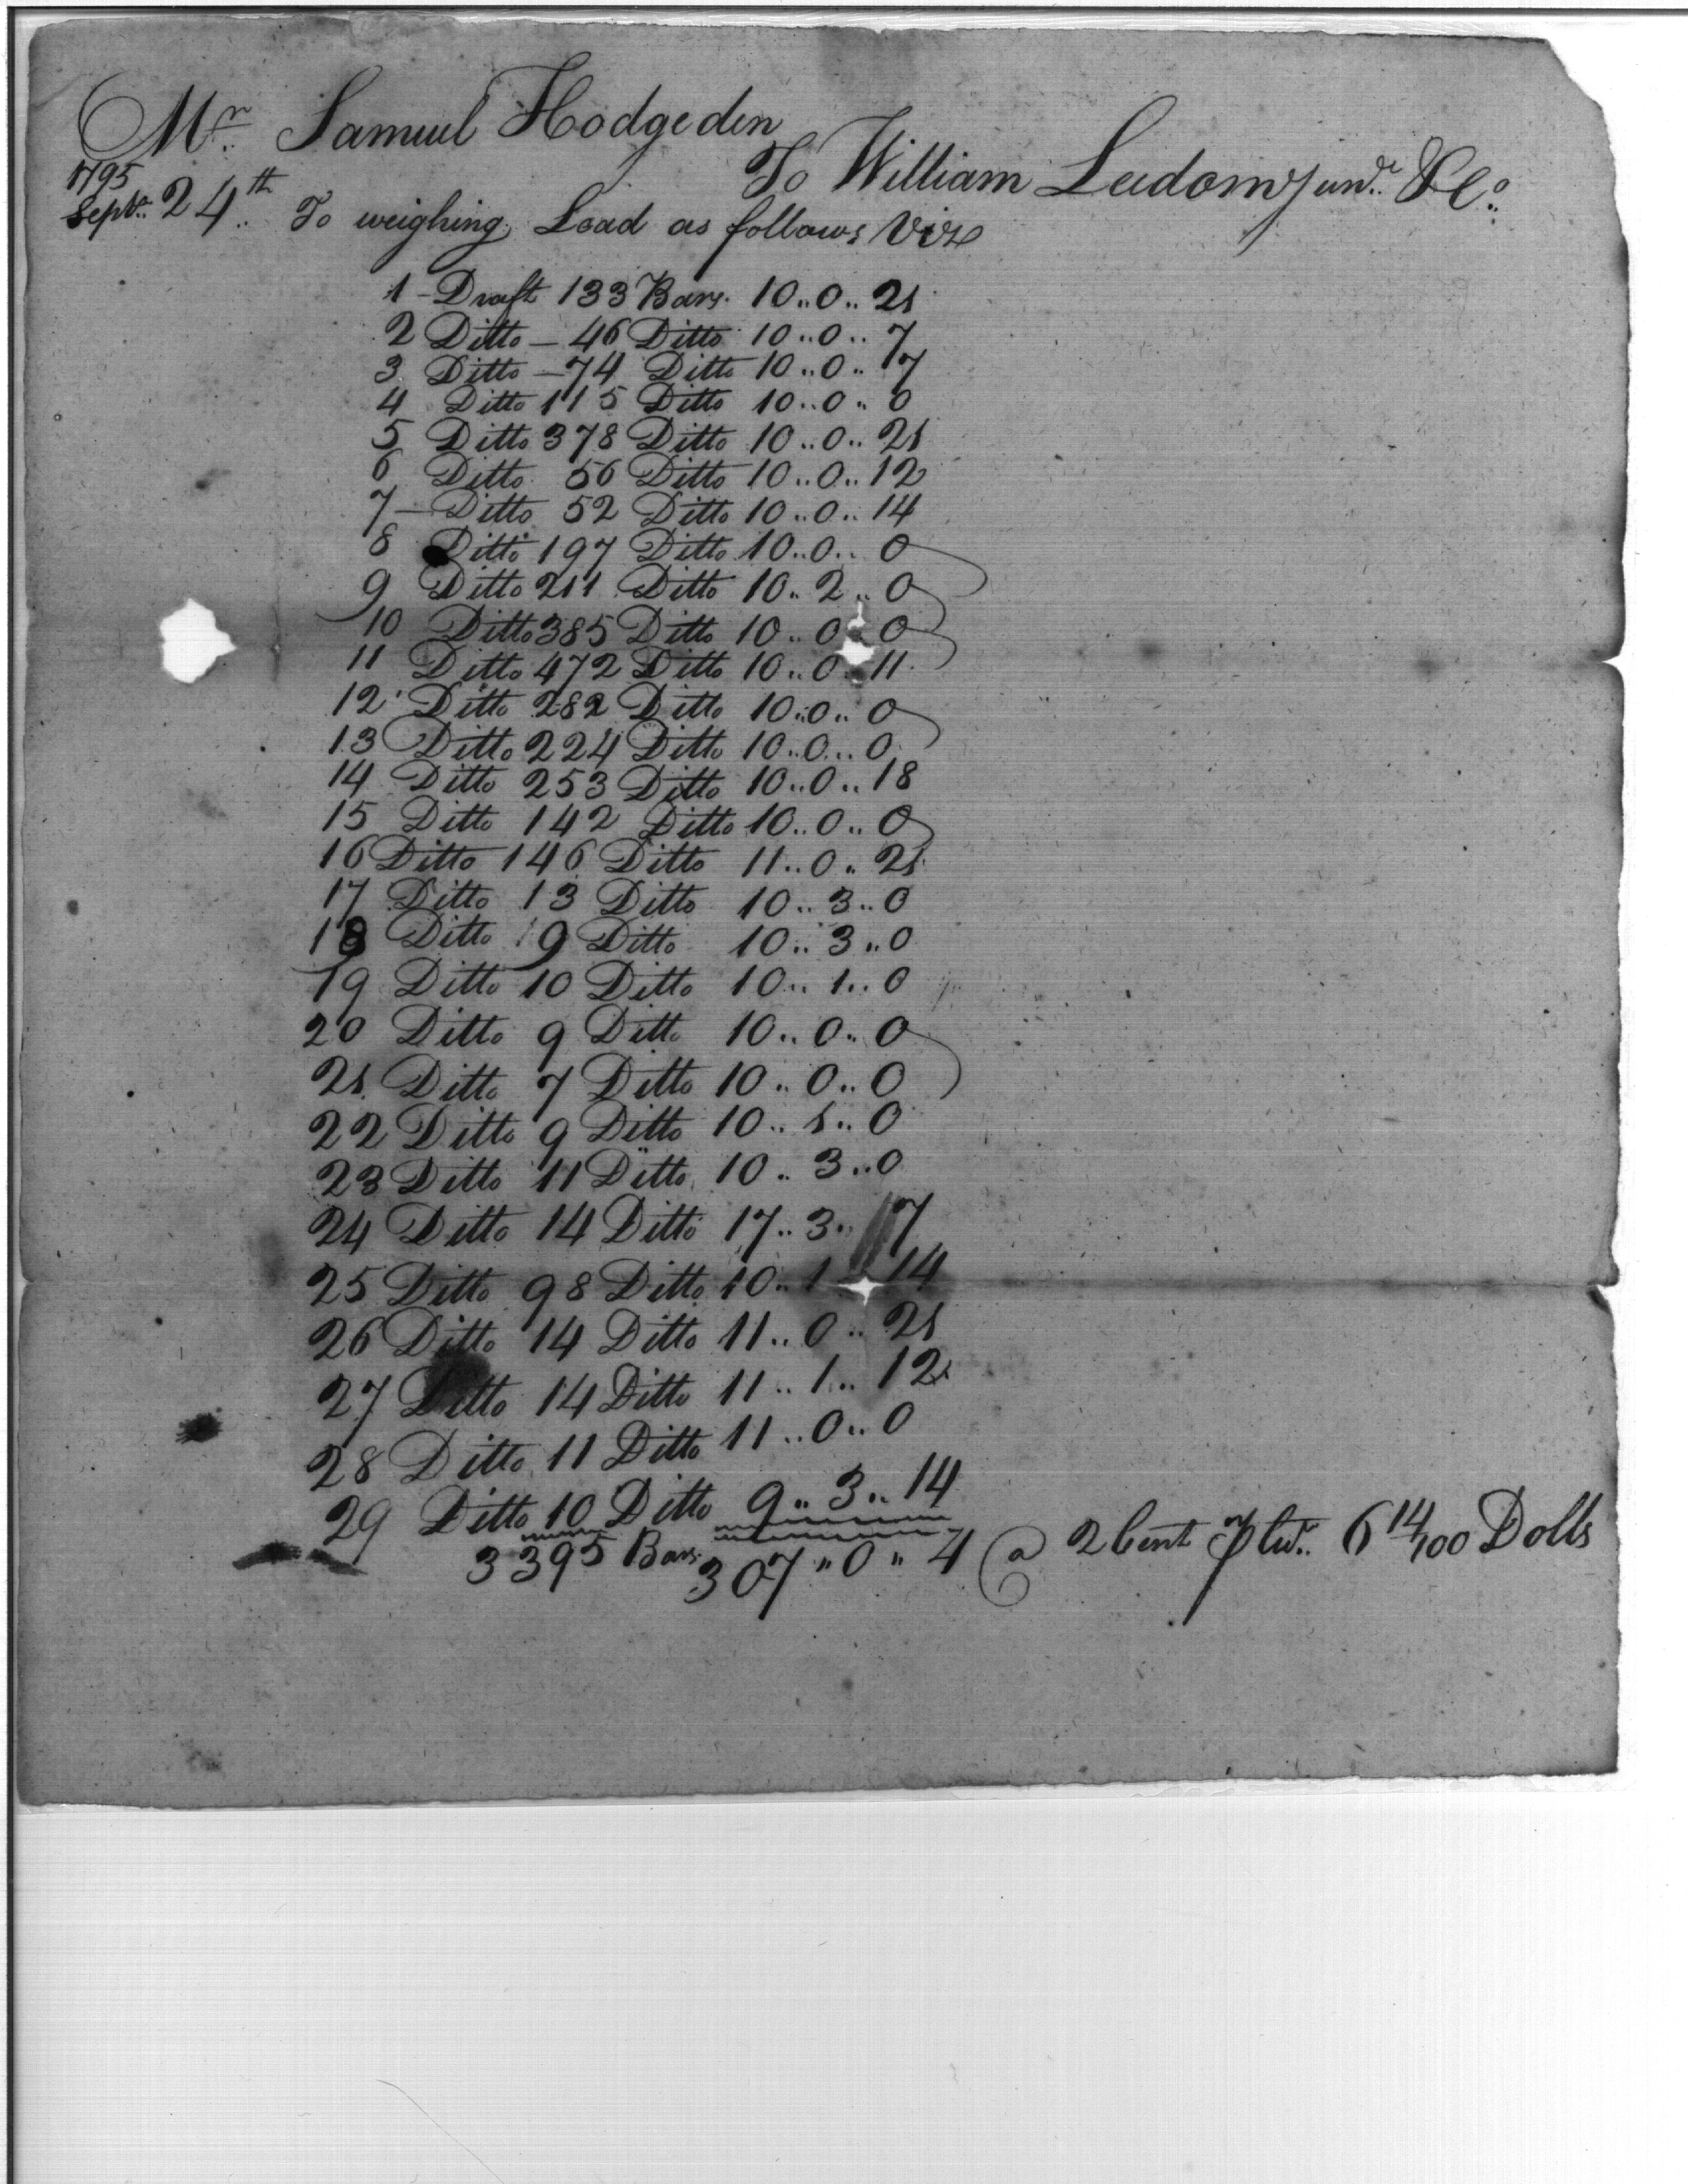 Mr. Samuel Hodgeden
To William Ledom Junr. & Co.
1795
Septr. 24th. To weighing Lead as follows Vizt
1 - Draft 133 Bars. 10..0..21
2 Ditto - 46 Ditto 10..0..7
3 Ditto - 74 Ditto 10..0..17
4 Ditto 115 Ditto 10..0..0
5 Ditto 378 Ditto 10..0..21
6 Ditto 56 Ditto 10..0..12
7 - Ditto 52 Ditto 10..0..14
8 Ditto 197 Ditto 10..0..0
9 Ditto 211 Ditto 10..2..0
10 Ditto 385 Ditto 10..0..0
11 Ditto 472 Ditto 10..0..11
12 Ditto 282 Ditto 10..0..0
13 Ditto 224 Ditto 10..0..0
14 Ditto 253 Ditto 10..0..18
15 Ditto 142 Ditto 10..0..0
16 Ditto 146 Ditto 11..0..21
17 Ditto 13 Ditto 10..3..0
18 Ditto 9 Ditto 10..3..0
19 Ditto 10 Ditto 10..1..0
20 Ditto 9 Ditto 10..0..0
21 Ditto 7 Ditto 10..0..0
22 Ditto 9 Ditto 10..1..0
23 Ditto 11 Ditto 10..3..0
24 Ditto 14 Ditto 17..3..7
25 Ditto 98 Ditto 10..1..14
26 Ditto 14 Ditto 11..0..21
27 Ditto 14 Ditto 11..1..12
28 Ditto 11 Ditto 11..0..0
29 Ditto 10 Ditto 9..3..14
3395 Bars. 307"0"4 @ 2 Cent p Cwt. 6 14/100 Dolls